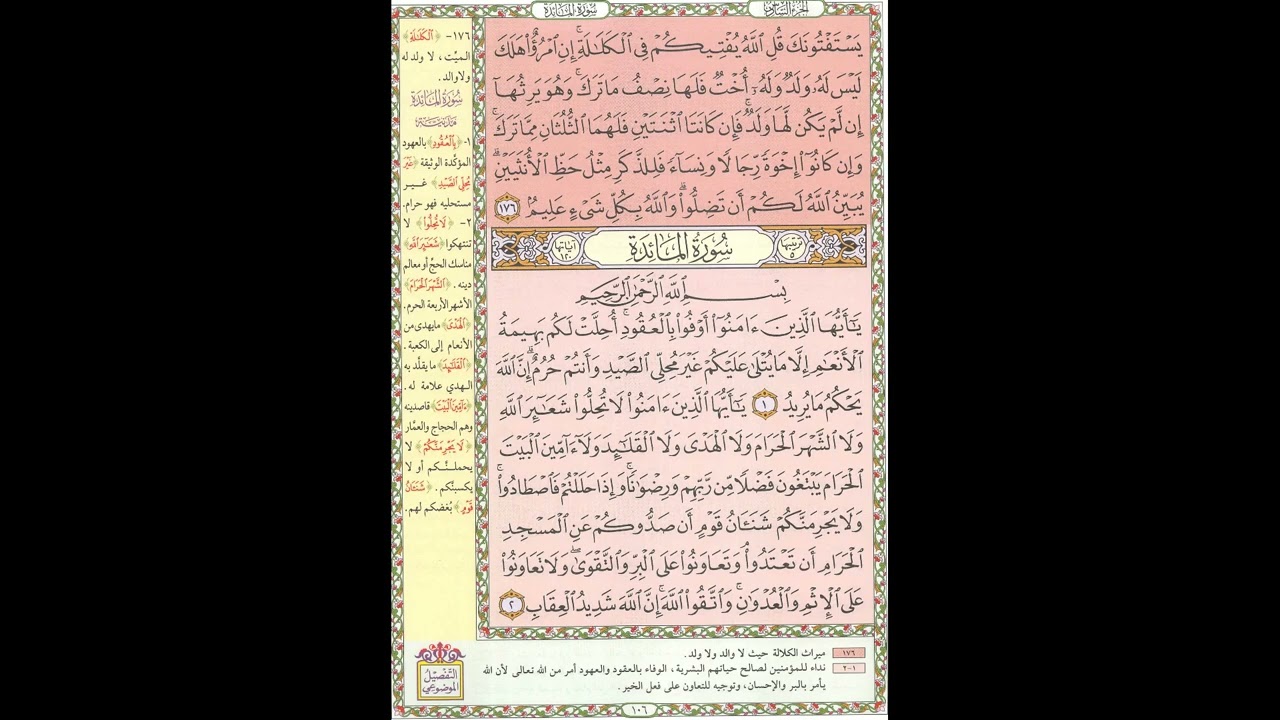 الجزء السادس
سورة المائدة
يَسْتَفْتُونَكَ قُلِ ٱللَّهُ يُفْتِيكُمْ فِى ٱلْكَلَٰلَةِ ۚ إِنِ ٱمْرُؤٌا۟ هَلَكَ
لَيْسَ لَهُۥ وَلَدٌ وَلَهُۥٓ أُخْتٌ فَلَهَا نِصْفُ مَا تَرَكَ ۚ وَهُوَ يَرِثُهَآ
إِن لَّمْ يَكُن لَّهَا وَلَدٌ ۚ فَإِن كَانَتَا ٱثْنَتَيْنِ فَلَهُمَا ٱلثُّلُثَانِ مِمَّا تَرَكَ ۚ
وَإِن كَانُوٓا۟ إِخْوَةً رِّجَالًا وَنِسَآءً فَلِلذَّكَرِ مِثْلُ حَظِّ ٱلْأُنثَيَيْنِ ۗ
يُبَيِّنُ ٱللَّهُ لَكُمْ أَن تَضِلُّوا۟ ۗ وَٱللَّهُ بِكُلِّ شَىْءٍ عَلِيمٌۢ ١٧٦
ترتيبها ٥
سُورَةُ المَائِدَةِ
آياتها ١٢٠
بِسْمِ ٱللَّهِ ٱلرَّحْمَٰنِ ٱلرَّحِيمِ
يَٰٓأَيُّهَا ٱلَّذِينَ ءَامَنُوٓا۟ أَوْفُوا۟ بِٱلْعُقُودِ ۚ أُحِلَّتْ لَكُم بَهِيمَةُ
ٱلْأَنْعَٰمِ إِلَّا مَا يُتْلَىٰ عَلَيْكُمْ غَيْرَ مُحِلِّى ٱلصَّيْدِ وَأَنتُمْ حُرُمٌ ۗ إِنَّ ٱللَّهَ
يَحْكُمُ مَا يُرِيدُ ١ يَٰٓأَيُّهَا ٱلَّذِينَ ءَامَنُوا۟ لَا تُحِلُّوا۟ شَعَٰٓئِرَ ٱللَّهِ
وَلَا ٱلشَّهْرَ ٱلْحَرَامَ وَلَا ٱلْهَدْىَ وَلَا ٱلْقَلَٰٓئِدَ وَلَآ ءَآمِّينَ ٱلْبَيْتَ
ٱلْحَرَامَ يَبْتَغُونَ فَضْلًا مِّن رَّبِّهِمْ وَرِضْوَٰنًا ۚ وَإِذَا حَلَلْتُمْ فَٱصْطَادُوا۟ ۚ
وَلَا يَجْرِمَنَّكُمْ شَنَـَٔانُ قَوْمٍ أَن صَدُّوكُمْ عَنِ ٱلْمَسْجِدِ
ٱلْحَرَامِ أَن تَعْتَدُوا۟ ۘ وَتَعَاوَنُوا۟ عَلَى ٱلْبِرِّ وَٱلتَّقْوَىٰ ۖ وَلَا تَعَاوَنُوا۟
عَلَى ٱلْإِثْمِ وَٱلْعُدْوَٰنِ ۚ وَٱتَّقُوا۟ ٱللَّهَ ۖ إِنَّ ٱللَّهَ شَدِيدُ ٱلْعِقَابِ ٢
١٧٦- ﴿ٱلْكَلَٰلَةِ﴾
الميِّت، لا ولد له
ولا والد.
سُورَةُ المَائِدَة
مدنية
١- ﴿بِٱلْعُقُودِ﴾ بالعهود
المؤكّدة الوثيقة ﴿غَيْرَ
مُحِلِّى ٱلصَّيْدِ﴾ غــيــر
مستحليه فهو حرام.
٢- ﴿لَا تُحِلُّوا۟﴾ لا
تنتهكوا ﴿شَعَٰٓئِرَ ٱللَّهِ﴾
مناسك الحجّ أو معالم
دينه. ﴿ٱلشَّهْرَ ٱلْحَرَامَ﴾
الأشهر الأربعة الحرم.
﴿ٱلْهَدْىَ﴾ ما يهدى من
الأنعام إلى الكعبة.
﴿ٱلْقَلَٰٓئِدَ﴾ ما يقلّد به
الهدي علامة له.
﴿ءَآمِّينَ ٱلْبَيْتَ﴾ قاصدينه
وهم الحجاج والعمَّار
﴿لَا يَجْرِمَنَّكُمْ﴾ لا
يحملنَّكم أو لا
يكسبنّكم. ﴿شَنَـَٔانُ
قَوْمٍ﴾ بُغضكم لهم.
١٧٦ ميراث الكلالة حيث لا والد ولا ولد.
١-٢ نداء للمؤمنين لصالح حياتهم البشرية، الوفاء بالعقود والعهود أمر من الله تعالى لأن الله
يأمر بالبر والإحسان، وتوجيه للتعاون على فعل الخير.
التَّفْصِيل
المَوضُوعِي
١٠٦